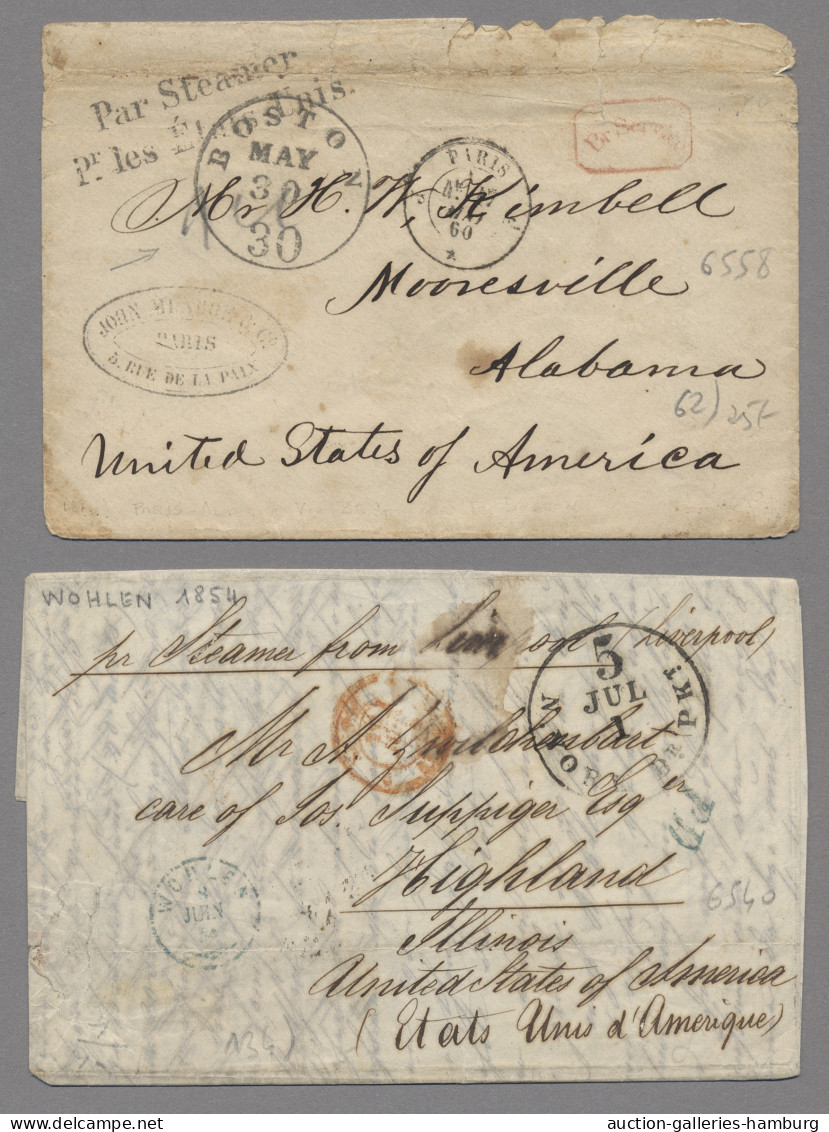 Par Steamer
Pr. les États Unis.
BOSTON
MAY
30
30
PARIS
60
Br. Service
Mr H. W. Kimbell
Mooresville
6558
JOHN MUNROE & Co
PARIS
5, RUE DE LA PAIX
Alabama
62) 25f
United States of America
WOHLEN 1854
pr Steamer from Liverpool (Liverpool)
5
JUL
1
NEW YORK BR PKT
Mr A.
care of Jos. Suppiger Esqer
PD
Highland
WOHLEN
JUIN
6540
Illinois
United States of America
(Etats Unis d'Amerique)
134)
auction-galleries-hamburg